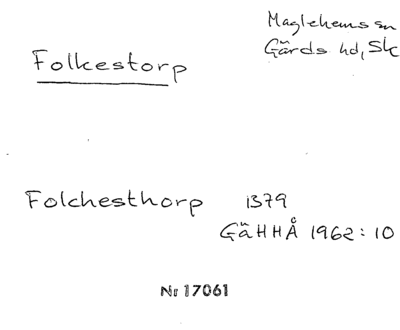 Maglehems sn
Folkestorp
Gärds hd, Sk
Folchesthorp 1379
GäHHÅ 1962:10
Nr 17061